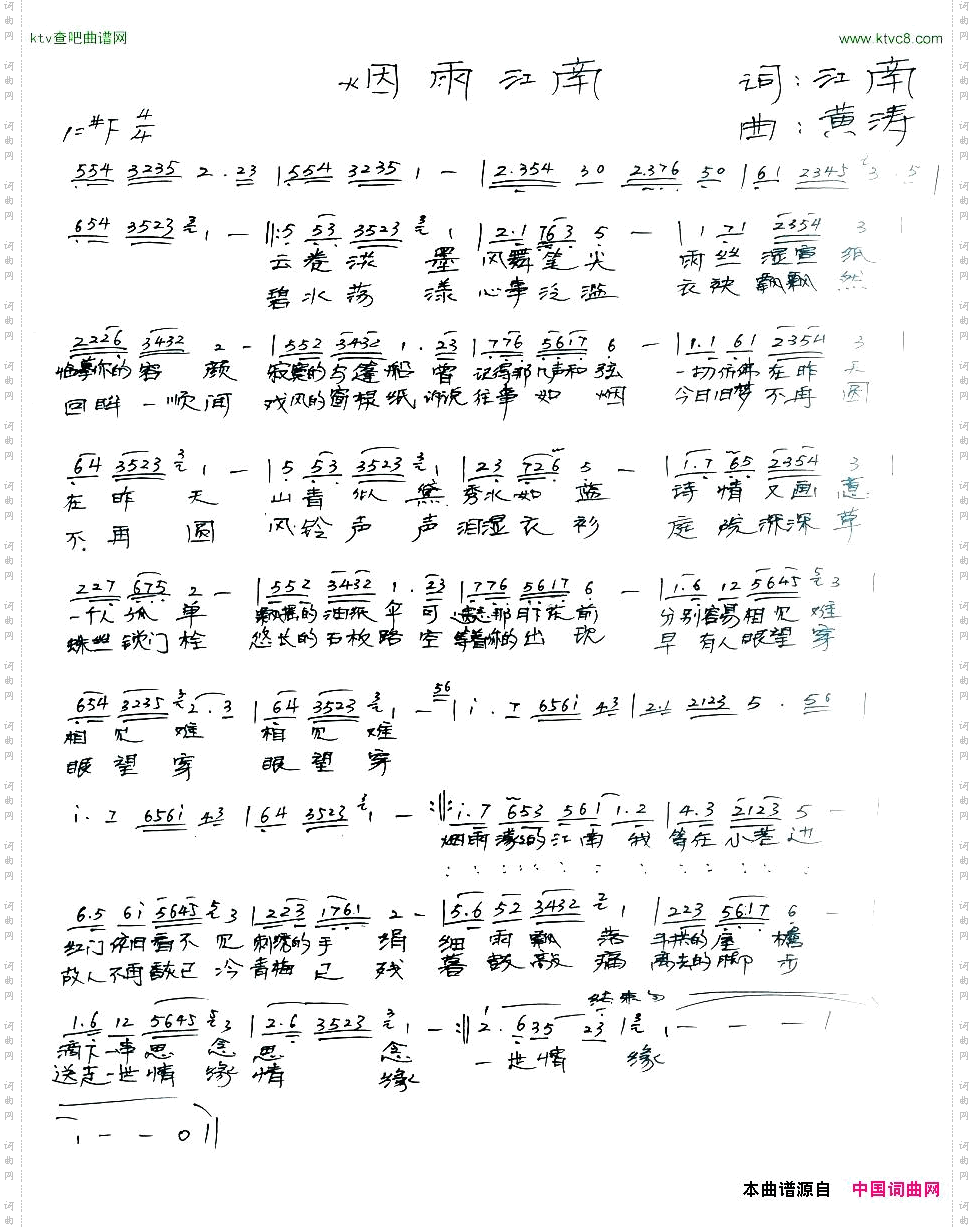 ktv查吧曲谱网 www.ktvc8.com
烟雨江南 词:江南
1=#F 4/4 曲:黄涛
554 3235 2.23 | 554 3235 1 - | 2.354 30 2.376 50 | 61 2345 3.5 |
654 3523 1 - ‖: 5 53 3523 1 | 2.1 763 5 - | 1 71 2354 3 |
云卷淡墨 风舞笔尖 雨丝湿宣纸
碧水荡漾 心事泛滥 衣袂飘飘然
2226 3432 2 - | 552 3432 1.23 | 776 5617 6 - | 1.1 61 2354 3 |
临摹你的容颜 寂寞的乌篷船 曾记得那几声和弦 一切仿佛在昨天
回眸一顺间 戏风的窗棂纸 诉说往事如烟 今日旧梦不再圆
64 3523 1 - | 5 53 3523 1 | 23 726 5 - | 1.7 65 2354 3 |
在昨天 山青似黛 秀水如蓝 诗情又画意
不再圆 风铃声声 泪湿衣衫 庭院深深草
227 675 2 - | 552 3432 1.23 | 776 5617 6 - | 1.6 12 5645 3 |
一个人孤单 飘摇的油纸伞 可 那月下花前 分别容易相见难
蛛丝锁门栓 悠长的石板路 空等着你的出现 早有人眼望穿
654 3235 2.3 | 64 3523 1 - 56 | i.7 656i 43 | 2.1 2123 5.56 |
相见难 相见难
眼望穿 眼望穿
i.7 656i 43 | 64 3523 1 - :‖: i.7 653 561 1.2 | 4.3 2123 5 - |
烟雨濛濛的江南 我等在小巷边
6.5 6i 5645 3 | 223 1761 2 - | 5.6 52 3432 1 | 223 5617 6 - |
红门依旧看不见 刺绣的手绢 细雨飘落 斗拱的屋檐
故人不再酒已冷 青梅已残 暮鼓敲痛 离去的脚步
1.6 12 5645 3 | 2.6 3523 1 - :‖ 2.635 23 | 1 - - - |
结束句
滴下一串思念 思念 一世情缘
送走一世情缘 情缘
1 - - 0 ‖
本曲谱源自 中国词曲网